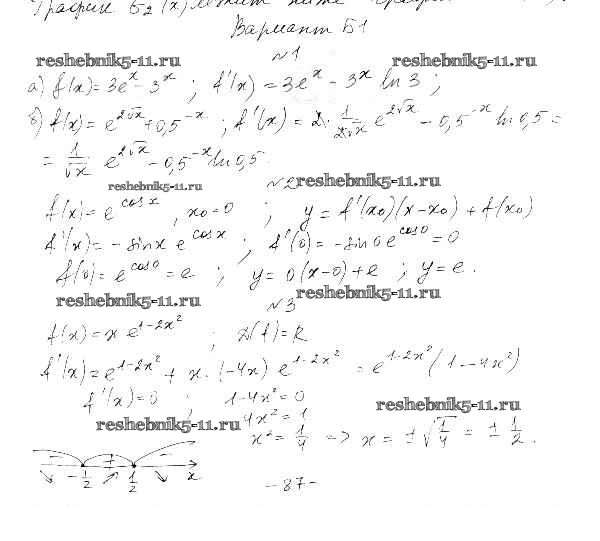 График Б2(x) лежит ниже
Вариант Б1
№1
reshebnik5-11.ru reshebnik5-11.ru
а) f(x)=3e^x-3^x ; f'(x)=3e^x-3^x ln3 ;
б) f(x)=e^{2√x}+0,5^{-x} ; f'(x)=2·1/(2√x) e^{2√x}-0,5^{-x} ln0,5=
=1/√x e^{2√x}-0,5^{-x}ln0,5.
reshebnik5-11.ru №2 reshebnik5-11.ru
f(x)=e^{cosx}, x0=0 ; y=f'(x0)(x-x0)+f(x0)
f'(x)=-sinx e^{cosx} ; f'(0)=-sin0 e^{cos0}=0
f(0)=e^{cos0}=e ; y=0(x-0)+e ; y=e.
reshebnik5-11.ru №3 reshebnik5-11.ru
f(x)=x e^{1-2x^2} ; D(f)=R
f'(x)=e^{1-2x^2}+x·(-4x) e^{1-2x^2}=e^{1-2x^2}(1-4x^2)
f'(x)=0 ; 1-4x^2=0
reshebnik5-11.ru 4x^2=1 reshebnik5-11.ru
x^2=1/4 => x=±√(1/4)=±1/2.
- + -
↘ -1/2 ↗ 1/2 ↘ x
-87-